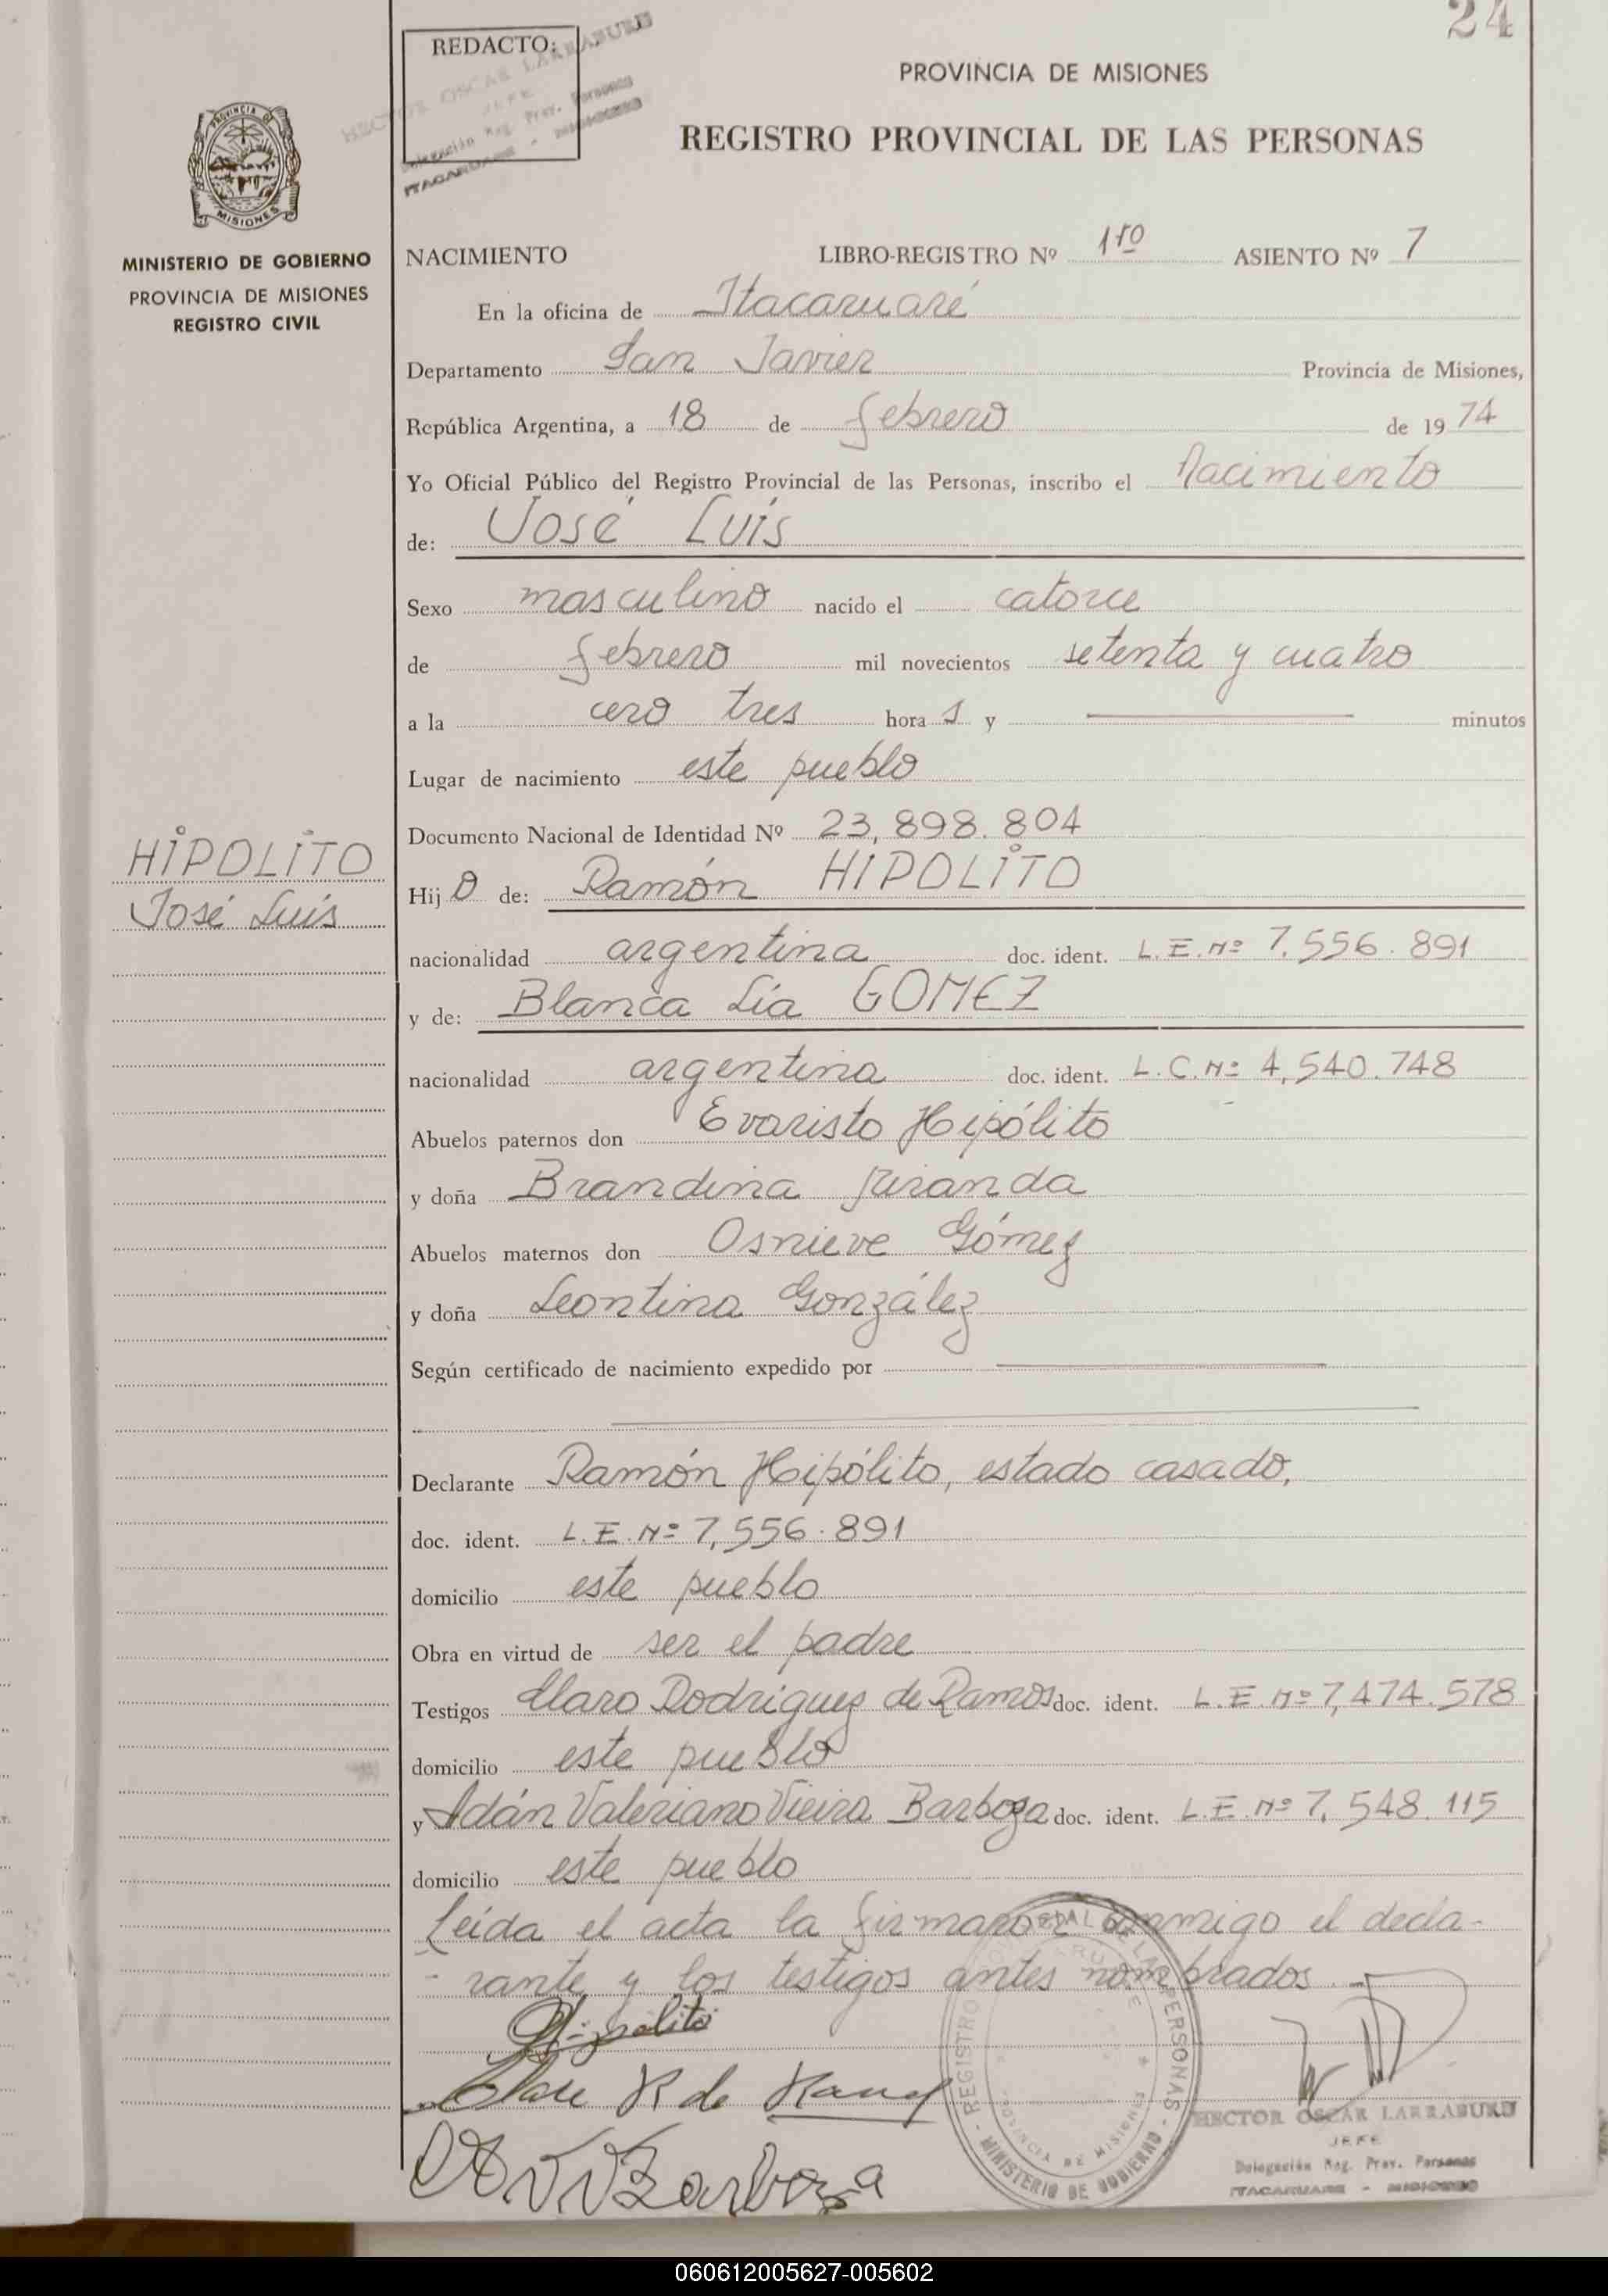 24
REDACTO:
HECTOR OSCAR LARRABURU
JEFE
Delegación Reg. Prov. Personas
ITACARUARE - MISIONES
PROVINCIA DE MISIONES
REGISTRO PROVINCIAL DE LAS PERSONAS
PROVINCIA DE MISIONES
MINISTERIO DE GOBIERNO
PROVINCIA DE MISIONES
REGISTRO CIVIL
NACIMIENTO LIBRO-REGISTRO Nº 1ro ASIENTO Nº 7
En la oficina de Itacaruaré
Departamento San Javier Provincia de Misiones,
República Argentina, a 18 de febrero de 1974
Yo Oficial Público del Registro Provincial de las Personas, inscribo el Nacimiento
de: José Luis
Sexo masculino nacido el catorce
de febrero mil novecientos setenta y cuatro
a la cero tres hora s y minutos
Lugar de nacimiento este pueblo
Documento Nacional de Identidad Nº 23,898.804
HIPOLITO
José Luis
Hijo de: Ramón HIPOLITO
nacionalidad argentina doc. ident. L.E.Nº 7.556.891
y de: Blanca Lía GOMEZ
nacionalidad argentina doc. ident. L.C.Nº 4,540.748
Abuelos paternos don Evaristo Hipólito
y doña Brandina Miranda
Abuelos maternos don Osnieve Gómez
y doña Leontina González
Según certificado de nacimiento expedido por
Declarante Ramón Hipólito, estado casado,
doc. ident. L.E.Nº 7,556.891
domicilio este pueblo
Obra en virtud de ser el padre
Testigos Claro Rodriguez de Ramos doc. ident. L.E.Nº 7,474.578
domicilio este pueblo
y Adán Valeriano Vieira Barboza doc. ident. L.E.Nº 7.548.115
domicilio este pueblo
Leída el acta la firmaron conmigo el decla-
-rante y los testigos antes nombrados
Hipolito
R de Ramos
Barboza
REGISTRO PROVINCIAL DE LAS PERSONAS
MINISTERIO DE GOBIERNO
PROVINCIA DE MISIONES
HECTOR OSCAR LARRABURU
JEFE
Delegación Reg. Prov. Personas
ITACARUARE - MISIONES
060612005627-005602